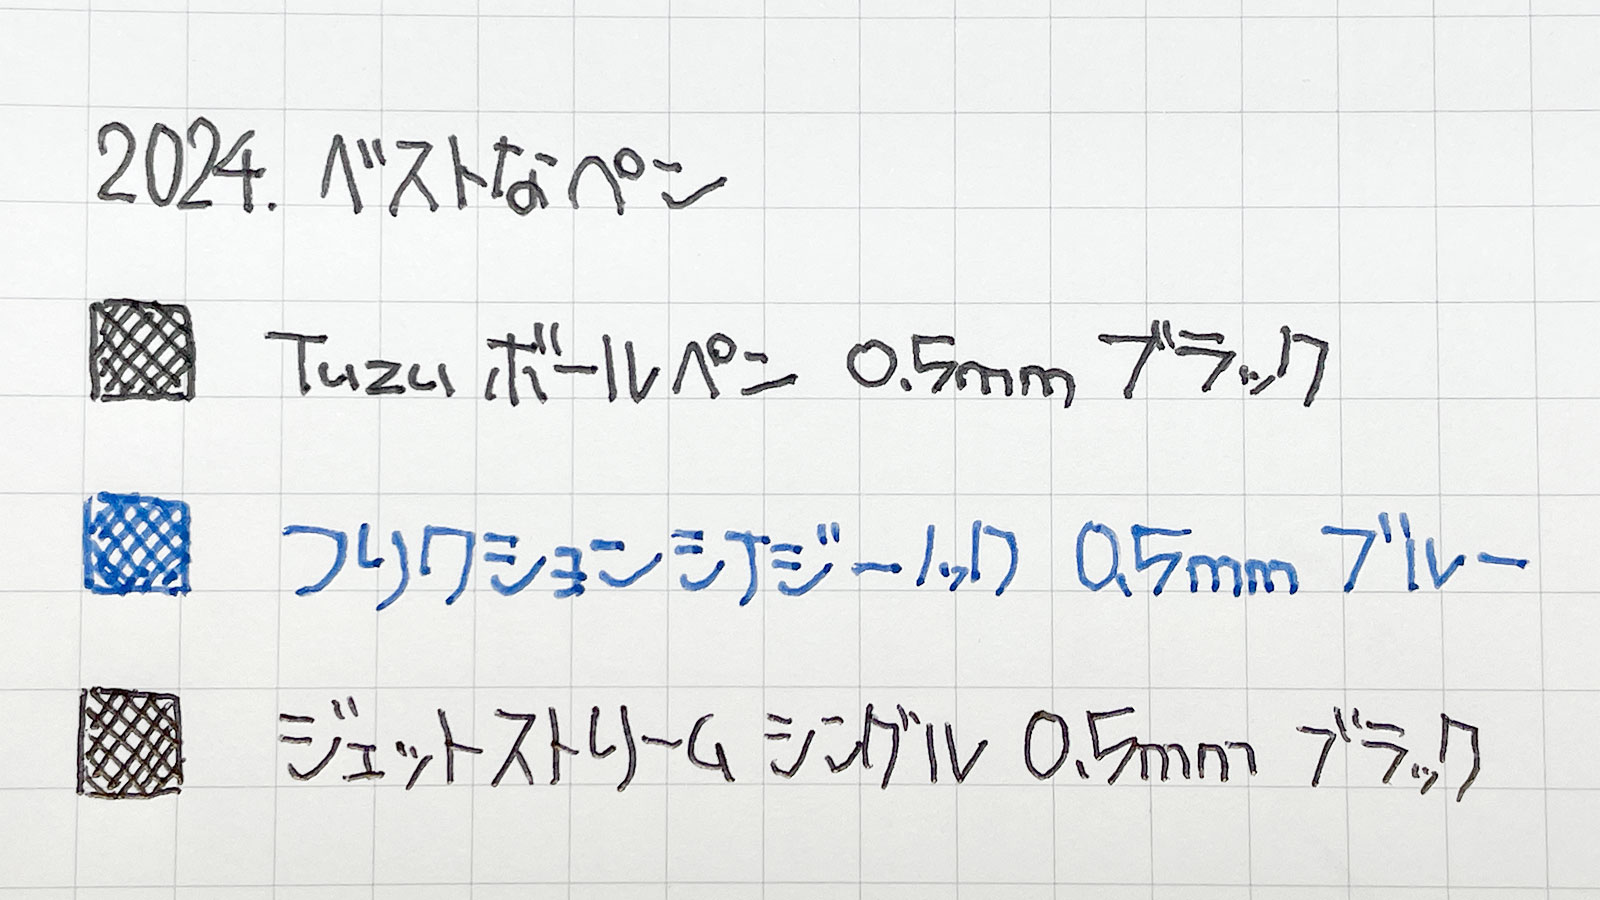 2024. ベストなペン
Tuzu ボールペン 0.5mm ブラック
フリクションシナジーノック 0.5mm ブルー
ジェットストリーム シングル 0.5mm ブラック